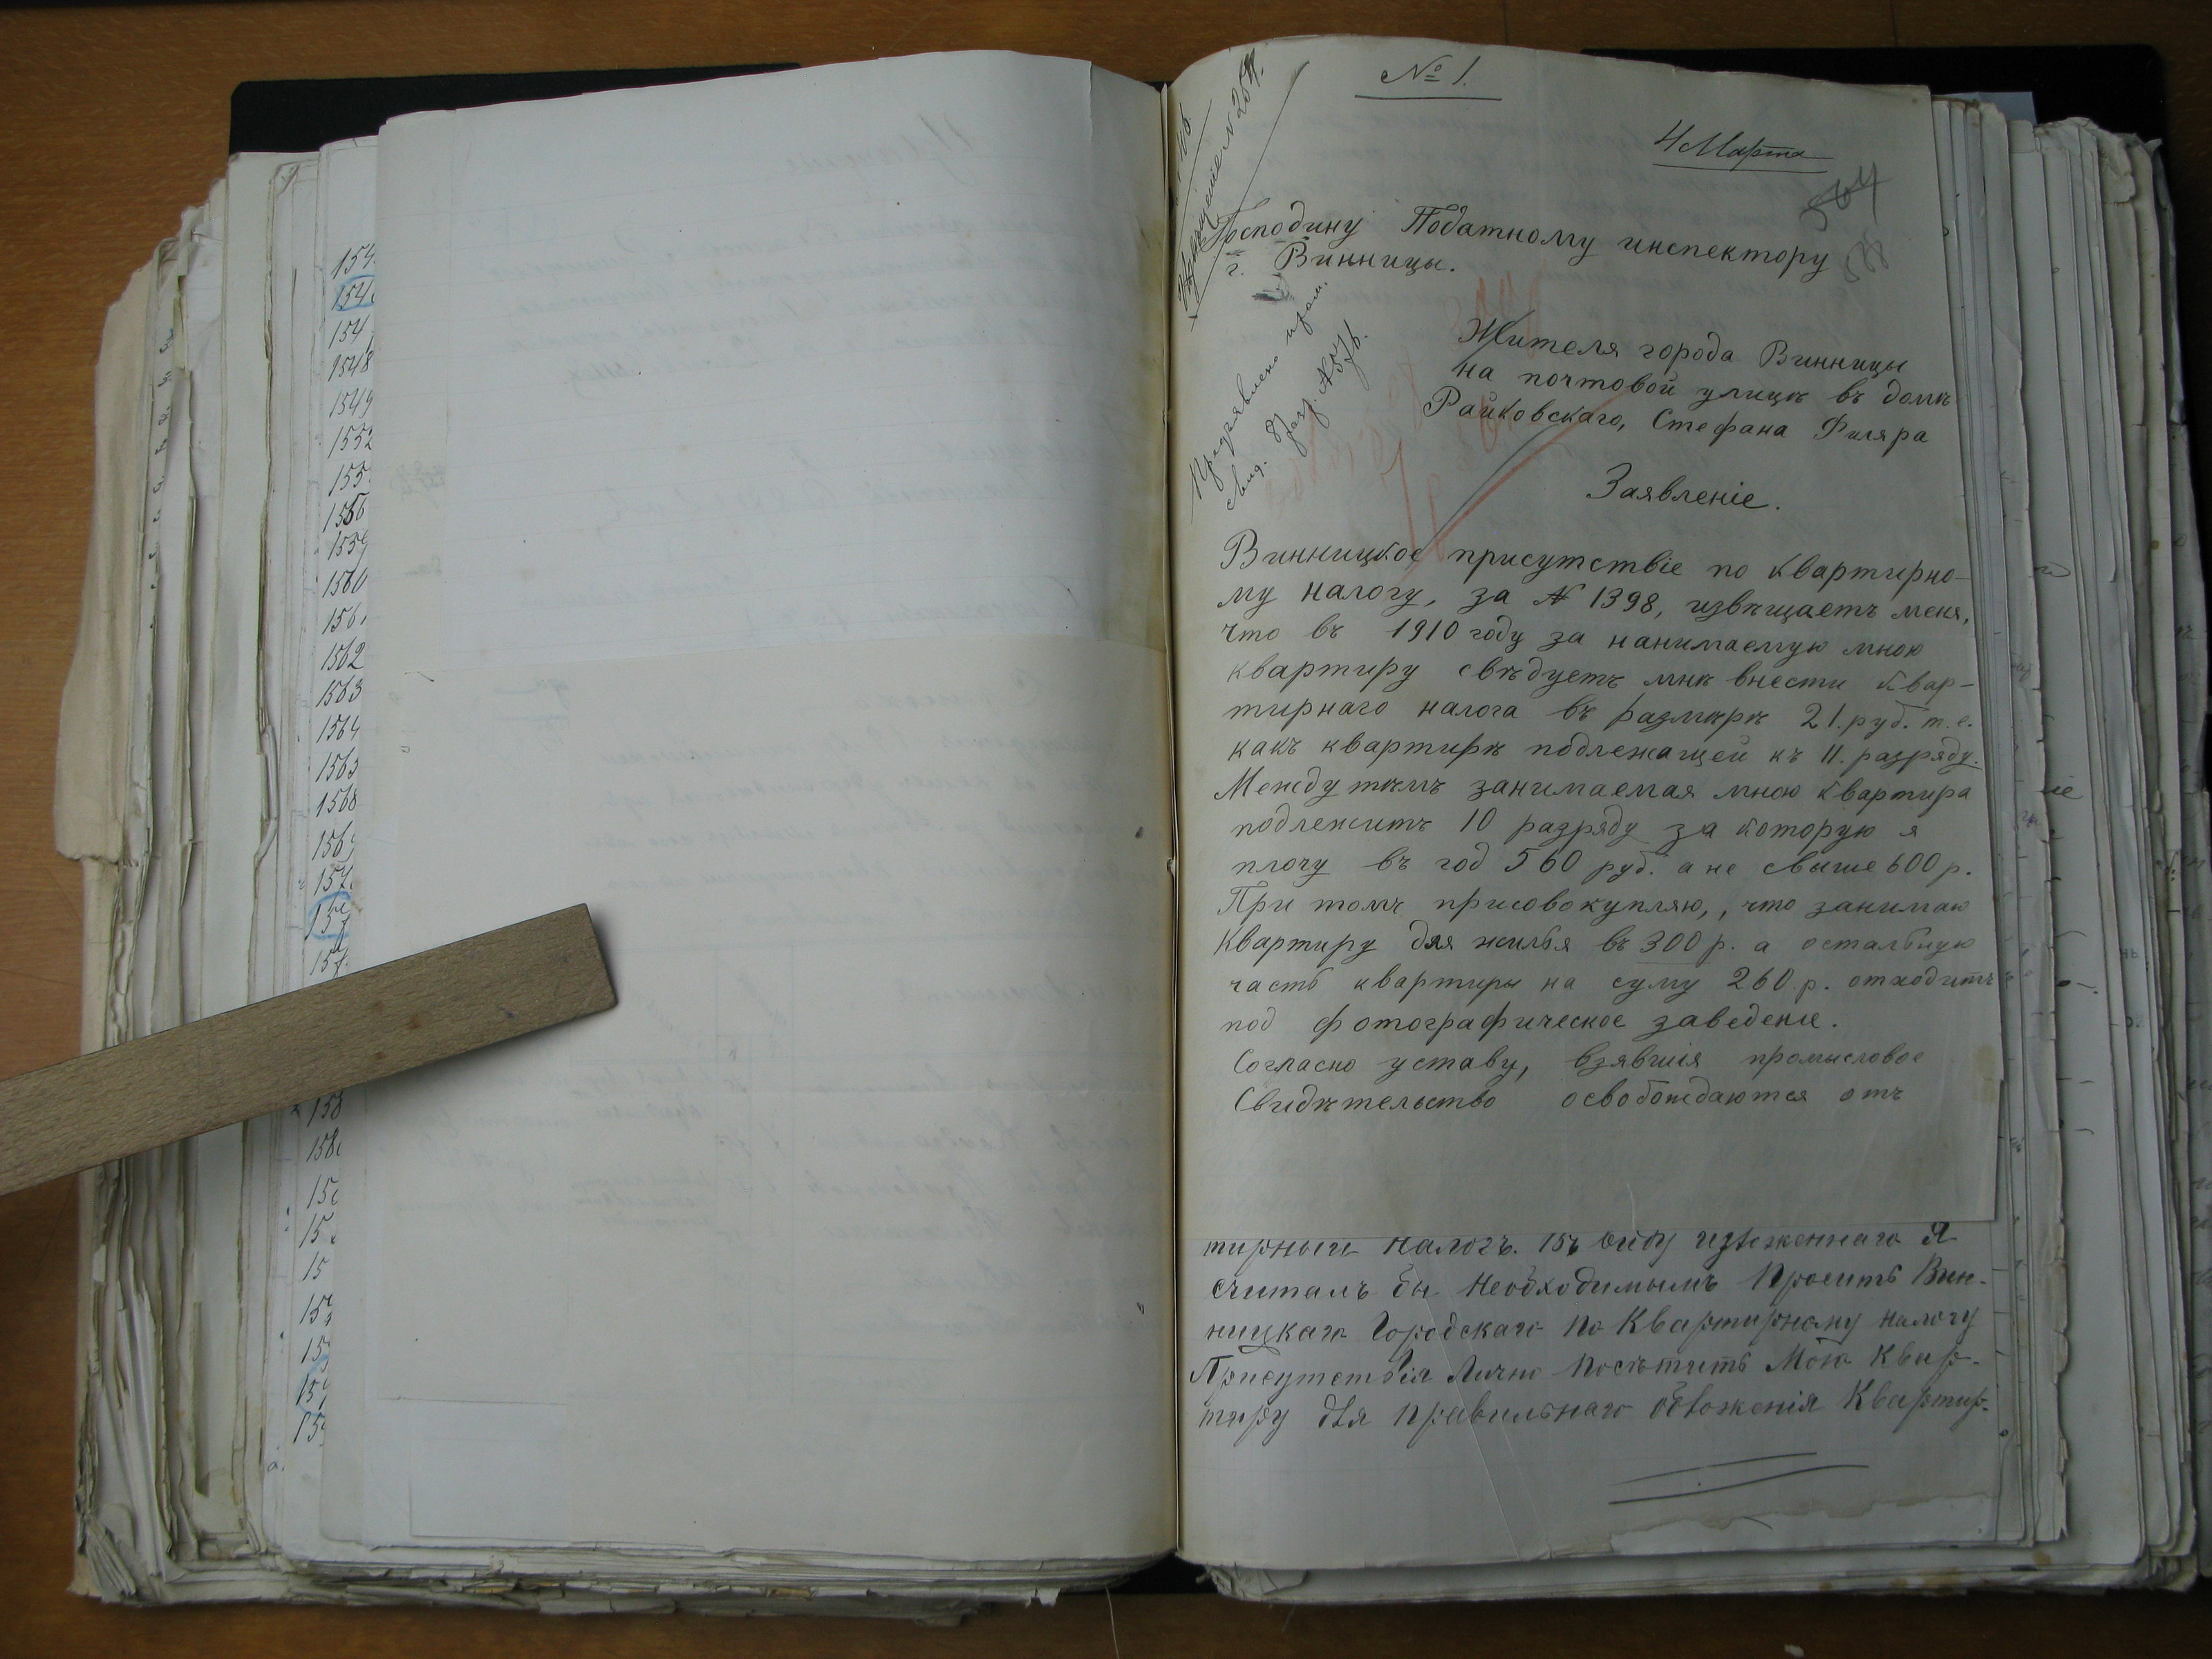 154
154
154
1548
1549
1552
155
1556
1559
1560
156
1562
1563
1564
1565
1568
156
157
157
157
158
158
15
15
15
15
15
15
15
№ 1.
4 Марта
564
588
Извещеніе № 2571.
Предъявлено пром.
свид. 8 разр. № 576.
Господину Податному инспектору
г. Винницы.
Жителя города Винницы
на почтовой улицѣ въ домѣ
Райковскаго, Стефана Филяра
Заявленіе.
Винницкое присутствіе по квартирно-
му налогу, за № 1398, извѣщаетъ меня,
что въ 1910 году за нанимаемую мною
квартиру свѣдуетъ мнѣ внести квар-
тирнаго налога въ размѣрѣ 21. руб. т.е.
какъ квартирѣ подлежащей къ 11. разряду.
Между тѣмъ занимаемая мною квартира
подлежитъ 10 разряду за которую я
плочу въ год 560 руб. а не свыше 600 р.
При томъ присовокупляю,, что занимаю
квартиру для жилья въ 300 р. а остальную
часть квартиры на суму 260. р. отходитъ
под фотографическое заведеніе.
Согласно уставу, взявшія промысловое
Свидѣтельство освобождаются отъ
тирный налогъ. Въ виду изложеннаго я
считалъ бы необходимымъ просить Вин-
ницкаго Городскаго по Квартирному налогу
Присутствія Лично посѣтить Мою Квар-
тиру для правильнаго обложенія Квартир-